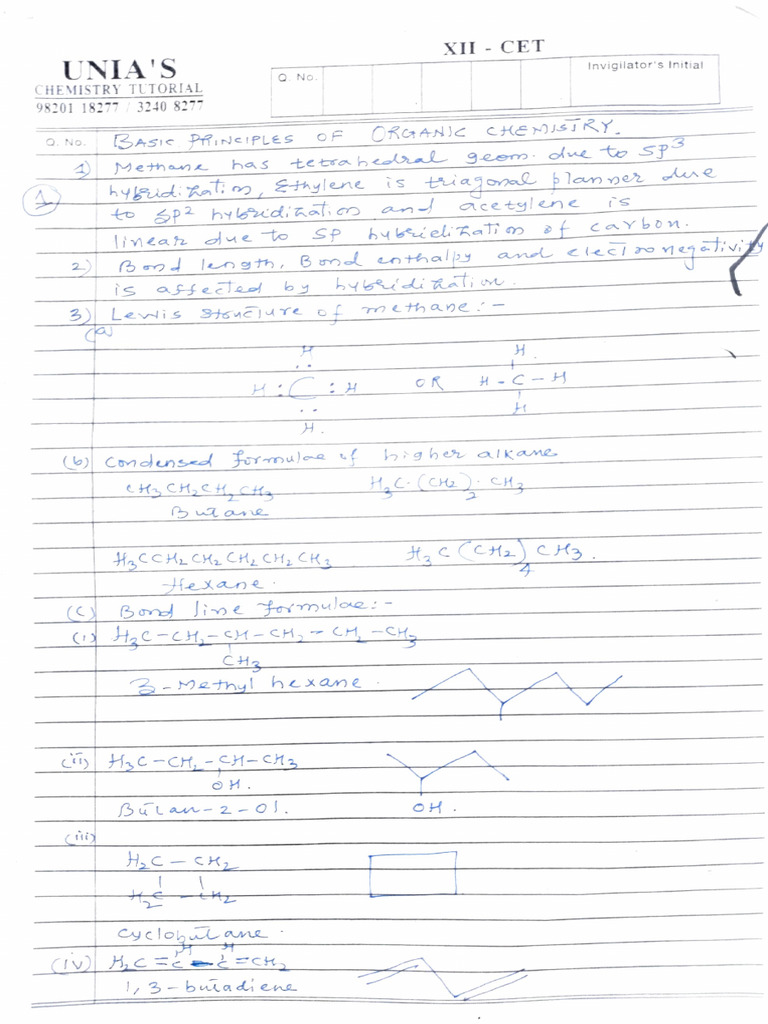 XII - CET
UNIA'S
CHEMISTRY TUTORIAL
98201 18277 / 3240 8277
Q. No.
Invigilator's Initial
Q. No. BASIC PRINCIPLES OF ORGANIC CHEMISTRY.
1) Methane has tetrahedral geom. due to SP³
1 hybridization, Ethylene is triagonal planner due
to SP² hybridization and acetylene is
linear due to SP hybridization of carbon.
2) Bond length, Bond enthalpy and electronegativity
is affected by hybridization.
3) Lewis structure of methane :-
(a)
H H.
H : C : H OR H - C - H
H. H
(b) Condensed formulae of higher alkane
CH₃CH₂CH₂CH₃ H₃C·(CH₂)₂·CH₃
Butane
H₃CCH₂CH₂CH₂CH₂CH₃ H₃C(CH₂)₄CH₃.
Hexane.
(C) Bond line formulae :-
(i) H₃C-CH₂-CH-CH₂-CH₂-CH₃
CH₃
3-Methyl hexane.
(ii) H₃C-CH₂-CH-CH₃
OH.
Butan-2-ol. OH.
(iii)
H₂C - CH₂
H₂C - CH₂
Cyclobutane.
(iv) H₂C=C-C=CH₂
H H
1,3-butadiene